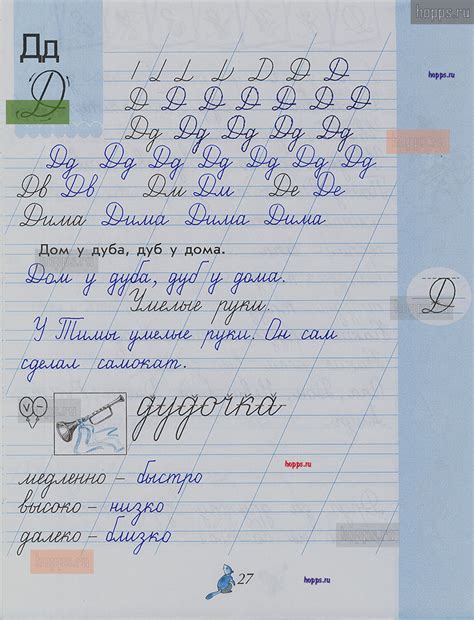 hopps.ru
Дд
hopps.ru
Д
Д Д Д
Д Д Д Д Д Д Д
Дд Дд Дд Дд Дд
hopps.ru
Дд Дд Дд Дд Дд Дд Дд
Дв Дв Дм Дм Де Де
Дима Дима Дима Дима
Дом у дуба, дуб у дома.
Дом у дуба, дуб у дома.
Д
Умелые руки.
У Тимы умелые руки. Он сам
сделал самокат.
дудочка
hopps.ru
медленно – быстро
высоко – низко
далеко – близко
hopps.ru
hopps.ru
27
hopps.ru